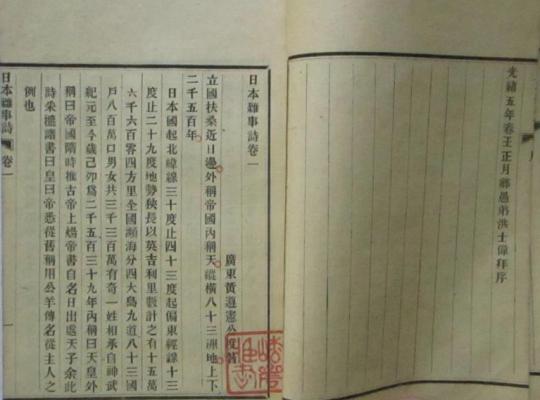 光緒五年春王正月鄉愚弟洪士偉拜序
日本雜事詩卷一
廣東黃遵憲公度著
立國扶桑近日邊外稱帝國內稱天縱橫八十三洲地上下
二千五百年
日本國起北緯線三十度止四十三度起偏東經線十三
度止二十九度地勢狹長以英吉利里數計之有十五萬
六千六百零四方里全國瀕海分四大島九道八十三國
戶八百萬口男女共三千三百萬有奇一姓相承自神武
紀元至今歲己卯爲二千五百三十九年內稱曰天皇外
稱曰帝國隋時推古帝上煬帝書自名日出處天子余此
詩采摭諸書曰皇曰帝悉從舊稱用公羊傳名從主人之
例也
日本雜事詩 卷一 一